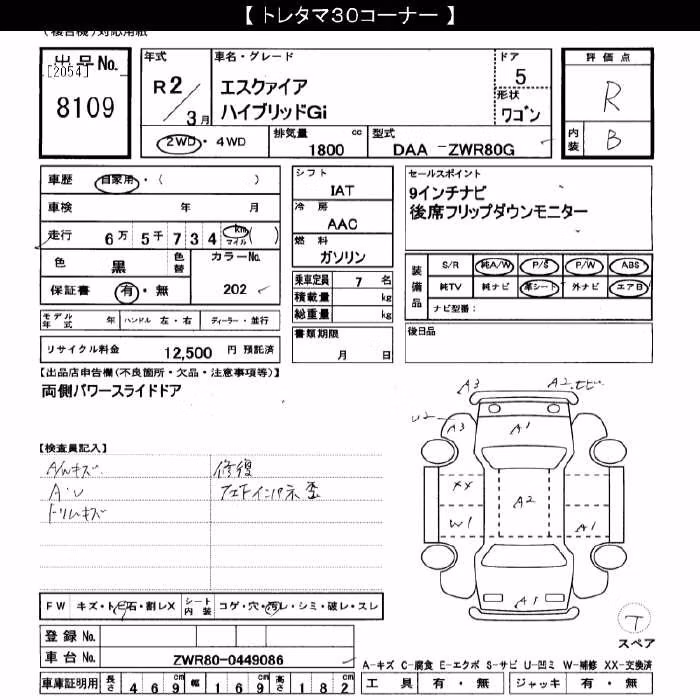 【 トレタマ30コーナー 】
(複合機)対応用紙
出品No.
[2054]
8109
年式
R 2 / 3月
車名・グレード
エスクァイア
ハイブリッドGi
ドア
5
形状
ワゴン
評価点
R
内装
B
2WD・4WD
排気量
1800 cc
型式
DAA -ZWR80G
車歴 自家用・( )
車検 年 月
走行 6万 5千 7 3 4 km マイル ( )
色 黒 色替
カラーNo.
202
保証書 有・無
モデル年式 年
ハンドル 左・右
ディーラー・並行
リサイクル料金 12,500 円 預託済
シフト
IAT
冷房
AAC
燃料
ガソリン
乗車定員 7 名
積載量 kg
総重量 kg
書類期限
月 日
セールスポイント
9インチナビ
後席フリップダウンモニター
装備品
S/R 純A/W P/S P/W ABS
純TV 純ナビ 革シート 外ナビ エアB
ナビ型番:
後日品
【出品店申告欄(不良箇所・欠品・注意事項等)】
両側パワースライドドア
【検査員記入】
A/Wキズ
A・U
トリムキズ
修復
A3
A2
U2
A3
A1
XX
A2
W1
A1
A1
T
スペア
FW キズ・トビ石・割レX
シート内装 コゲ・穴・汚レ・シミ・破レ・スレ
登録 No.
車台 No. ZWR80-0449086
車庫証明用 長さ 4 6 9 cm 幅 1 6 9 cm 高さ 1 8 2 cm
A-キズ C-腐食 E-エクボ S-サビ U-凹ミ W-補修 XX-交換済
工具 有・無 ジャッキ 有・無